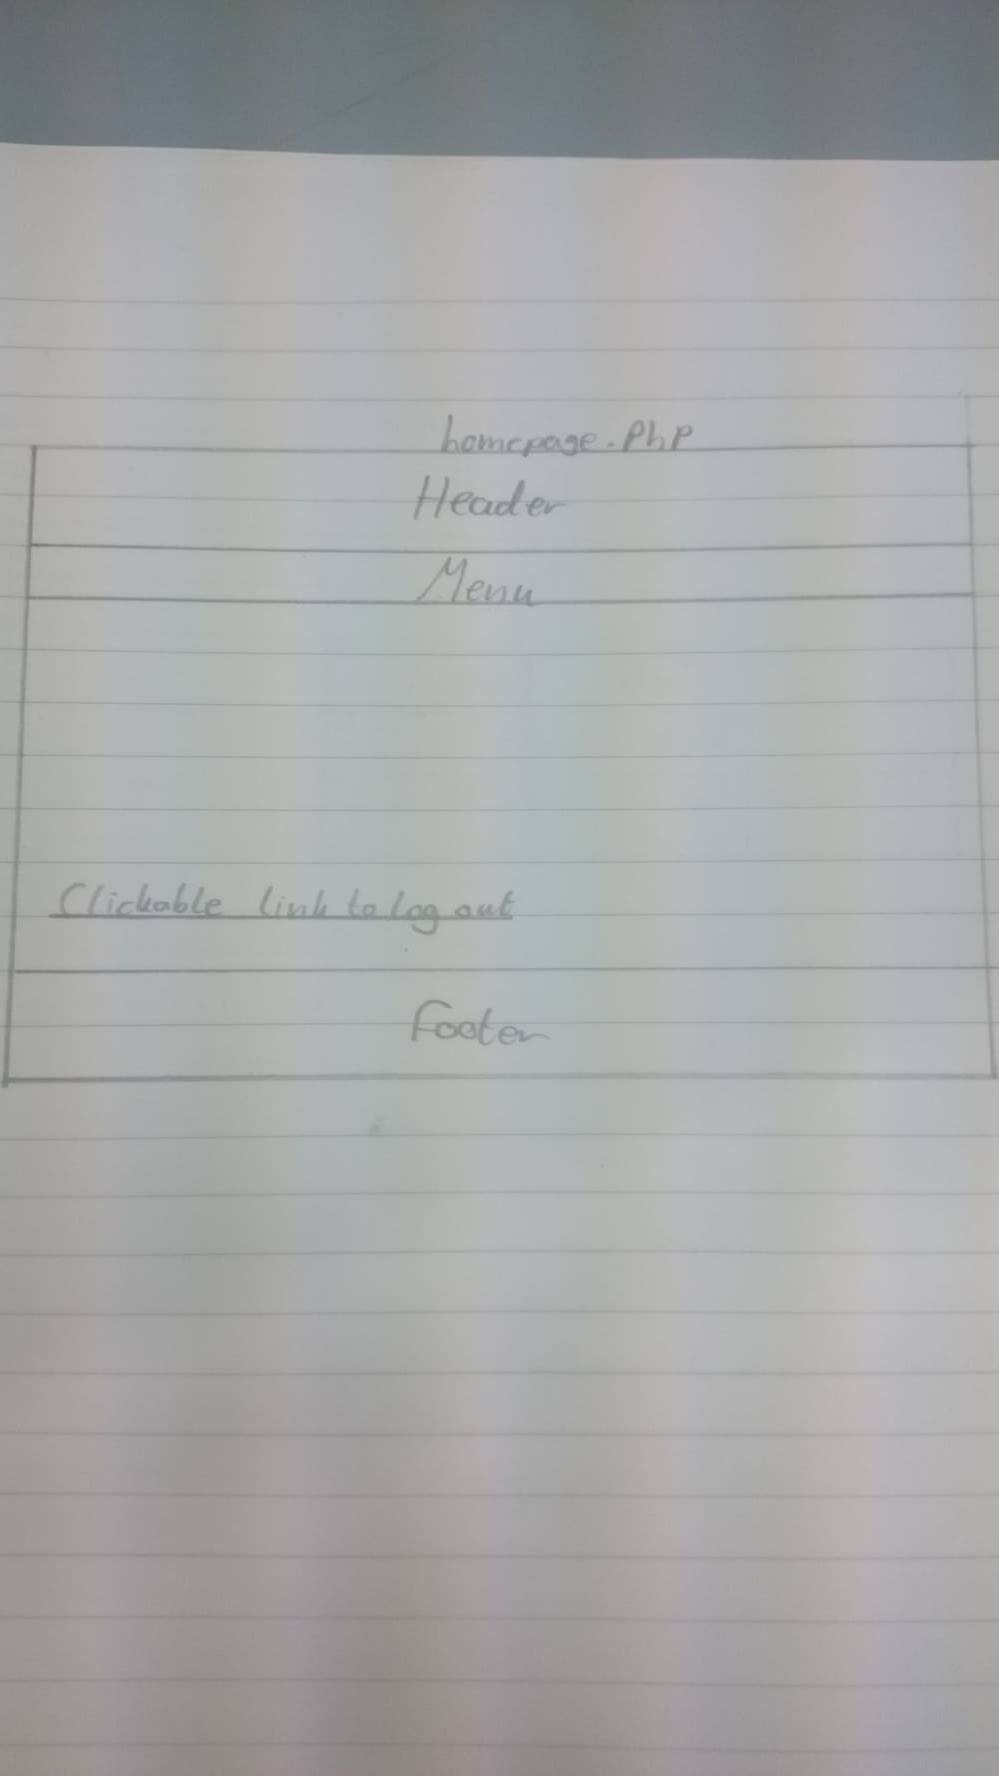 homepage.php
Header
Menu
Clickable link to log out
Footer